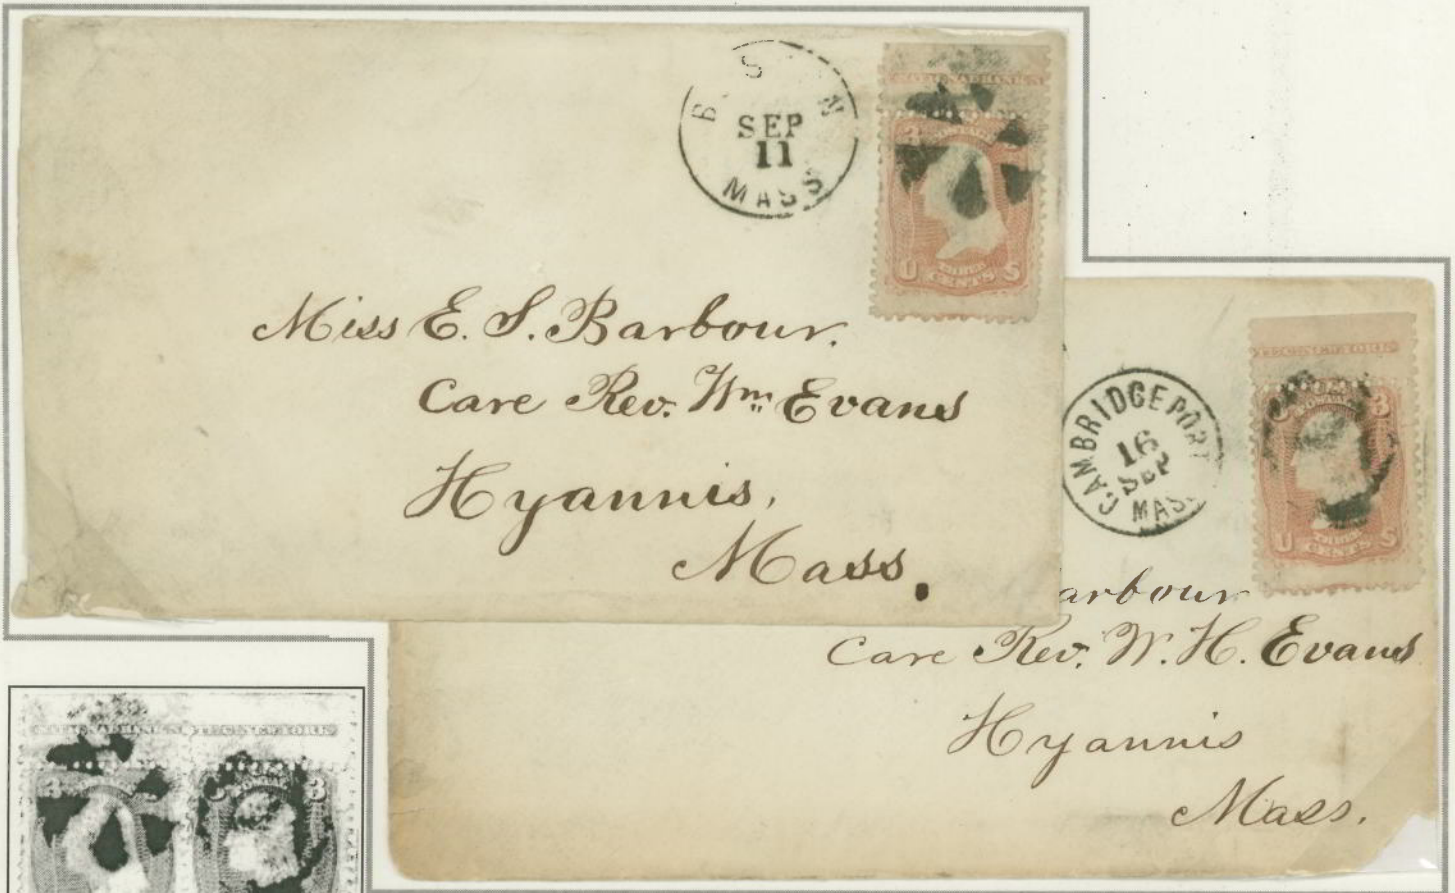 SEP
11
MASS
U S
THREE
CENTS
Miss E. S. Barbour.
Care Rev. Wm. Evans
Hyannis,
Mass.
CAMBRIDGEPORT
16
SEP
MASS
3
U S
THREE
CENTS
arbour
Care Rev. W. H. Evans
Hyannis
Mass.
3
3